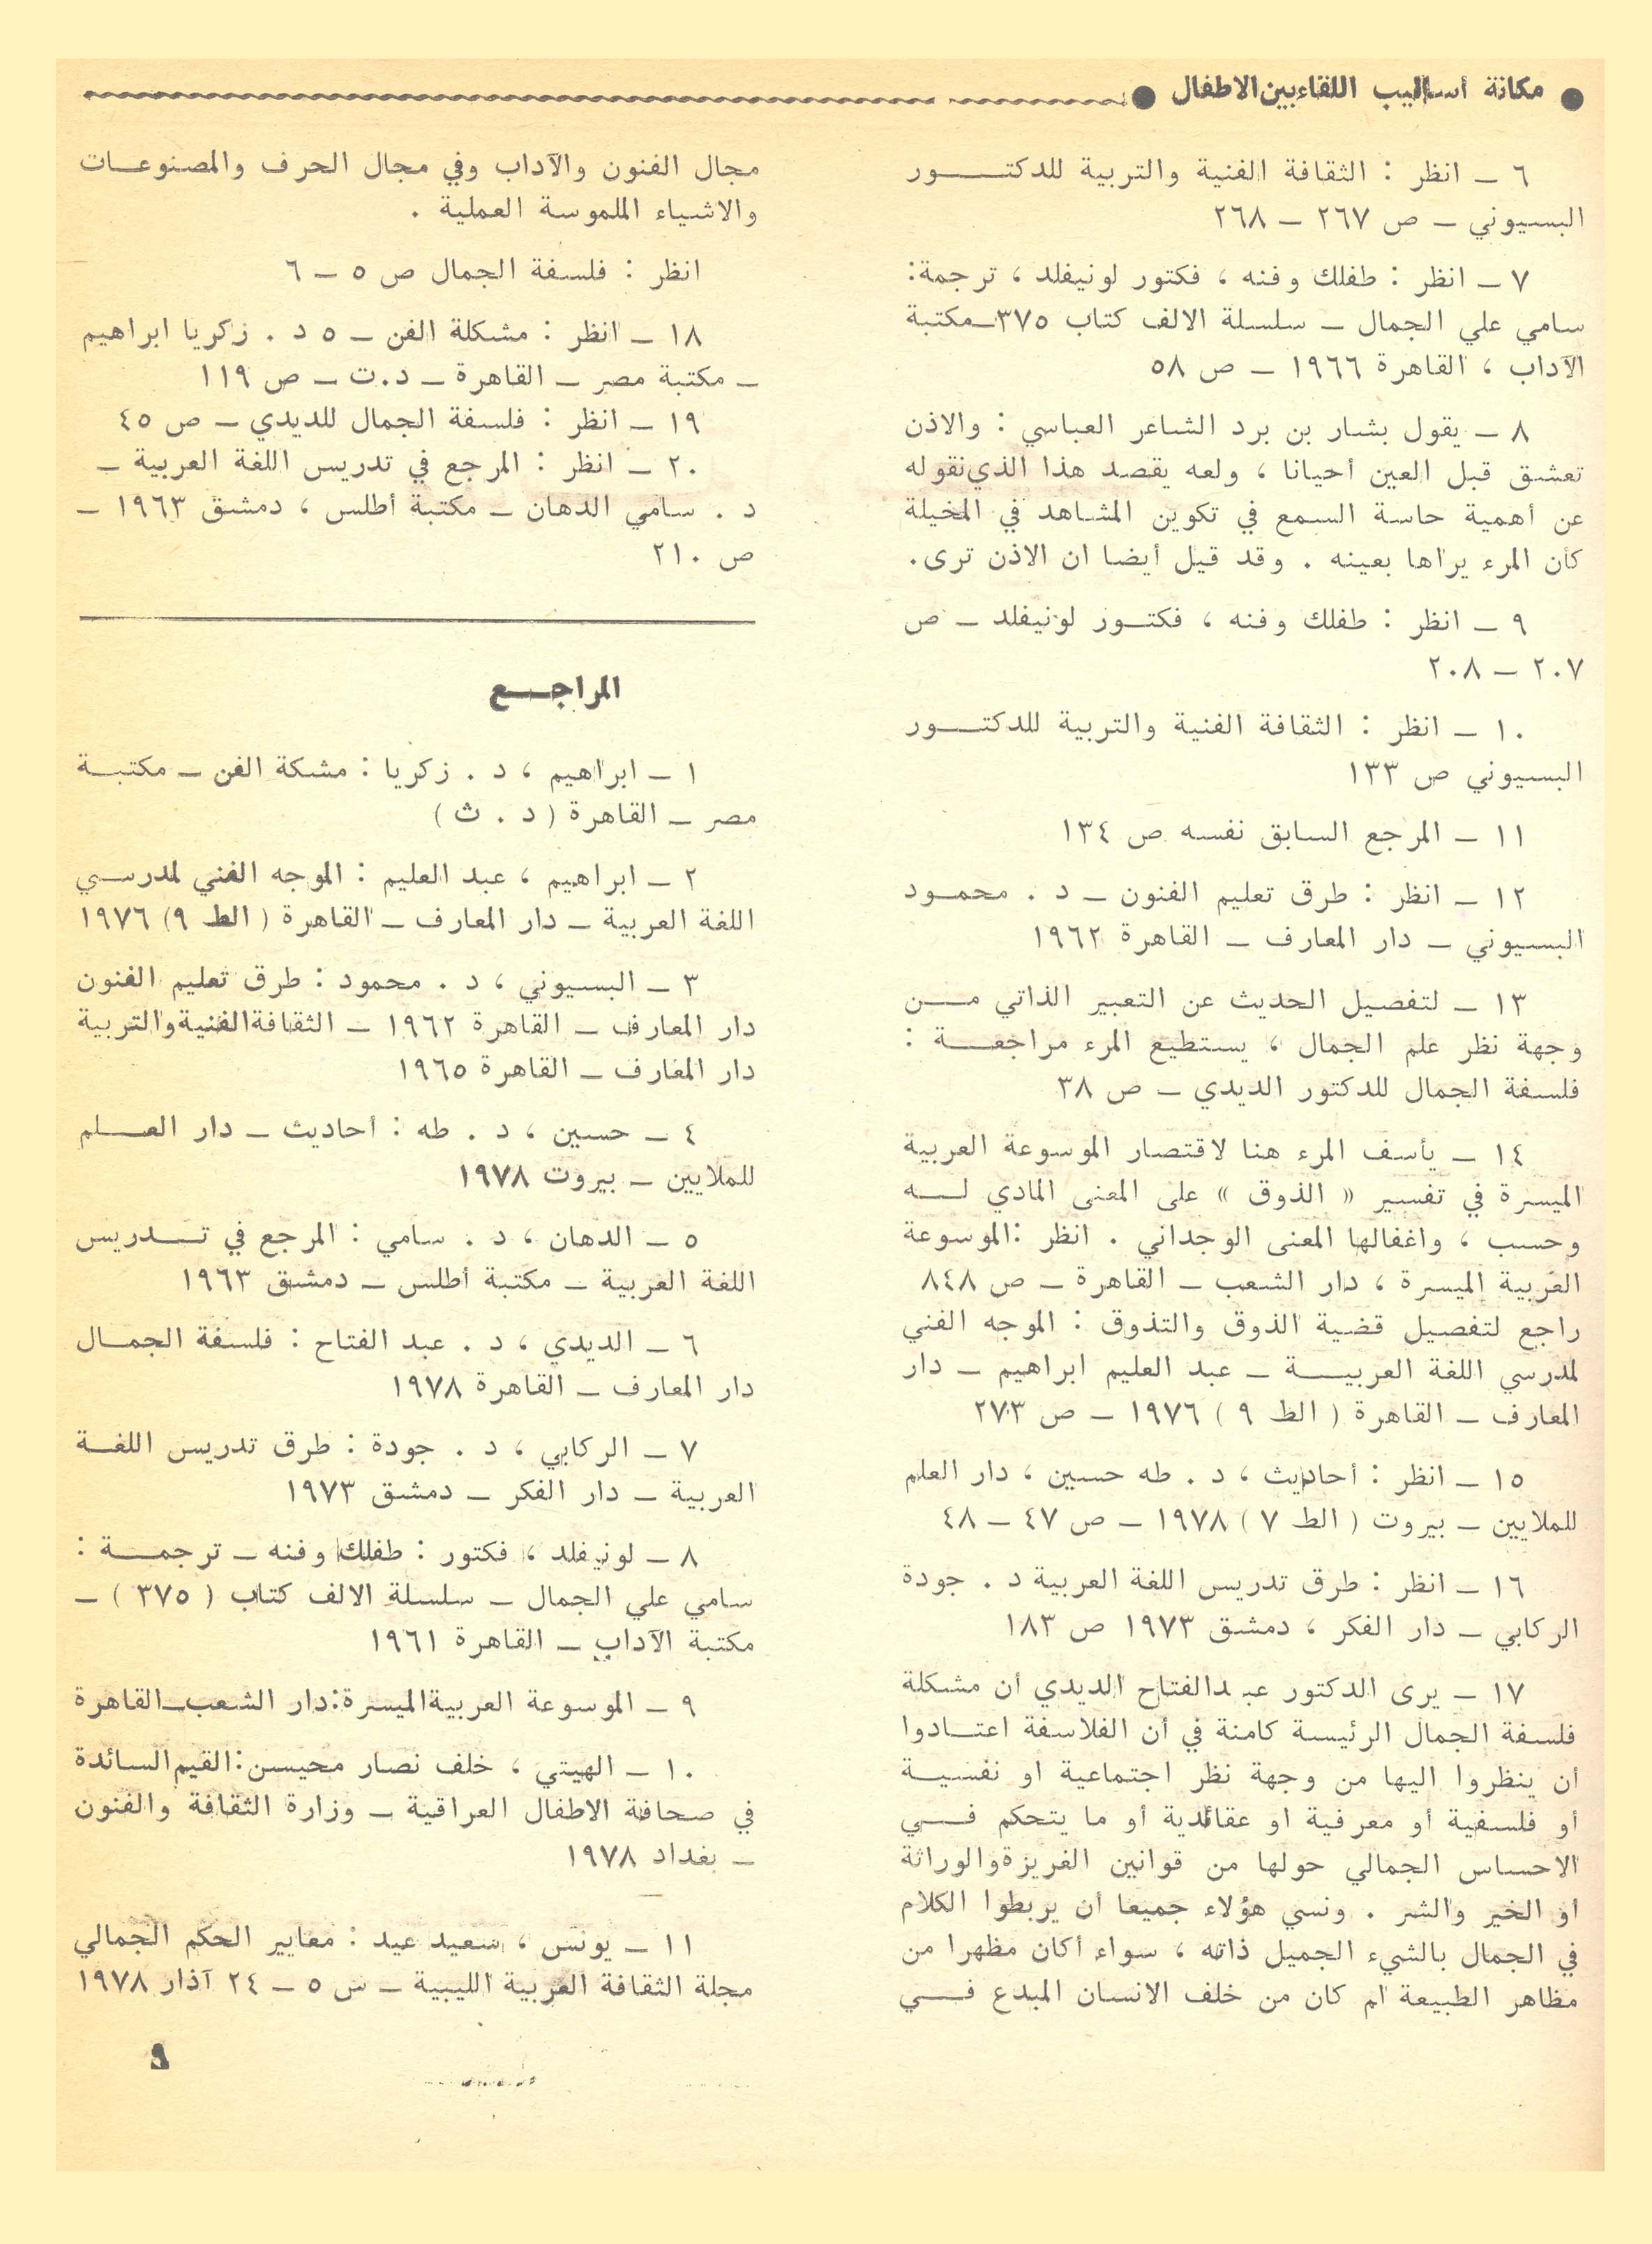 ● مكانة أساليب اللقاء بين الاطفال ●
٦ ـ انظر : الثقافة الفنية والتربية للدكتـــور
البسيوني ـ ص ٢٦٧ ـ ٢٦٨
٧ ـ انظر : طفلك وفنه ، فكتور لونيفلد ، ترجمة:
سامي علي الجمال ـ سلسلة الالف كتاب ٣٧٥ـمكتبة
الآداب ، القاهرة ١٩٦٦ ـ ص ٥٨
٨ ـ يقول بشار بن برد الشاعر العباسي : والاذن
تعشق قبل العين أحيانا ، ولعه يقصد هذا الذي نقوله
عن أهمية حاسة السمع في تكوين المشاهد في المخيلة
كأن المرء يراها بعينه . وقد قيل أيضا ان الاذن ترى.
٩ ـ انظر : طفلك وفنه ، فكتـور لونيفلد ـ ص
٢٠٧ ـ ٢٠٨
١٠ ـ انظر : الثقافة الفنية والتربية للدكتـــور
البسيوني ص ١٣٣
١١ ـ المرجع السابق نفسه ص ١٣٤
١٢ ـ انظر : طرق تعليم الفنون ـ د . محمـود
البسيوني ـ دار المعارف ـ القاهرة ١٩٦٢
١٣ ـ لتفصيل الحديث عن التعبير الذاتي مـــن
وجهة نظر علم الجمال ، يستطيع المرء مراجعــة :
فلسفة الجمال للدكتور الديدي ـ ص ٣٨
١٤ ـ يأسف المرء هنا لاقتصار الموسوعة العربية
الميسرة في تفسير « الذوق » على المعنى المادي لــه
وحسب ، واغفالها المعنى الوجداني . انظر :الموسوعة
العربية الميسرة ، دار الشعب ـ القاهرة ـ ص ٨٤٨
راجع لتفصيل قضية الذوق والتذوق : الموجه الفني
لمدرسي اللغة العربيـــة ـ عبد العليم ابراهيم ـ دار
المعارف ـ القاهرة ( الط ٩ ) ١٩٧٦ ـ ص ٢٧٣
١٥ ـ انظر : أحاديث ، د . طه حسين ، دار العلم
للملايين ـ بيروت ( الط ٧ ) ١٩٧٨ ـ ص ٤٧ ـ ٤٨
١٦ ـ انظر : طرق تدريس اللغة العربية د . جودة
الركابي ـ دار الفكر ، دمشق ١٩٧٣ ص ١٨٣
١٧ ـ يرى الدكتور عبدالفتاح الديدي أن مشكلة
فلسفة الجمال الرئيسة كامنة في أن الفلاسفة اعتـادوا
أن ينظروا اليها من وجهة نظر اجتماعية او نفسيـة
أو فلسفية أو معرفية او عقائدية أو ما يتحكم فـــي
الاحساس الجمالي حولها من قوانين الغريزة والوراثة
أو الخير والشر . ونسي هؤلاء جميعا أن يربطوا الكلام
في الجمال بالشيء الجميل ذاته ، سواء أكان مظهرا من
مظاهر الطبيعة ام كان من خلف الانسان المبدع فـــي
مجال الفنون والآداب وفي مجال الحرف والمصنوعـات
والاشياء الملموسة العملية .
انظر : فلسفة الجمال ص ٥ ـ ٦
١٨ ـ انظر : مشكلة الفن ـ ٥ د . زكريا ابراهيم
ـ مكتبة مصر ـ القاهرة ـ د.ت ـ ص ١١٩
١٩ ـ انظر : فلسفة الجمال للديدي ـ ص ٤٥
٢٠ ـ انظر : المرجع في تدريس اللغة العربية ـ
د . سامي الدهان ـ مكتبة أطلس ، دمشق ١٩٦٣ ـ
ص ٢١٠
المراجــع
١ ـ ابراهيم ، د . زكريا : مشكة الفن ـ مكتبـة
مصر ـ القاهرة ( د . ث )
٢ ـ ابراهيم ، عبد العليم : الموجه الفني لمدرسـي
اللغة العربية ـ دار المعارف ـ القاهرة ( الط ٩) ١٩٧٦
٣ ـ البسيوني ، د . محمود : طرق تعليم الفنون
دار المعارف ـ القاهرة ١٩٦٢ ـ الثقافة الفنية والتربية
دار المعارف ـ القاهرة ١٩٦٥
٤ ـ حسين ، د . طه : أحاديث ـ دار العـلم
للملايين ـ بيروت ١٩٧٨
٥ ـ الدهان ، د . سامي : المرجع في تـــدريس
اللغة العربية ـ مكتبة أطلس ـ دمشق ١٩٦٣
٦ ـ الديدي ، د . عبد الفتاح : فلسفة الجمـال
دار المعارف ـ القاهرة ١٩٧٨
٧ ـ الركابي ، د . جودة : طرق تدريس اللغـة
العربية ـ دار الفكر ـ دمشق ١٩٧٣
٨ ـ لونيفلد ، فكتور : طفلك وفنه ـ ترجمــة :
سامي علي الجمال ـ سلسلة الالف كتاب ( ٣٧٥ ) ـ
مكتبة الآداب ـ القاهرة ١٩٦١
٩ ـ الموسوعة العربية الميسرة:دار الشعب ـ القاهرة
١٠ ـ الهيتي ، خلف نصار محيسن:القيم السائدة
في صحافة الاطفال العراقية ـ وزارة الثقافة والفنون
ـ بغداد ١٩٧٨
١١ ـ يونس ، سعيد عيد : معايير الحكم الجمالي
مجلة الثقافة العربية الليبية ـ س ٥ ـ ٢٤ آذار ١٩٧٨
٩